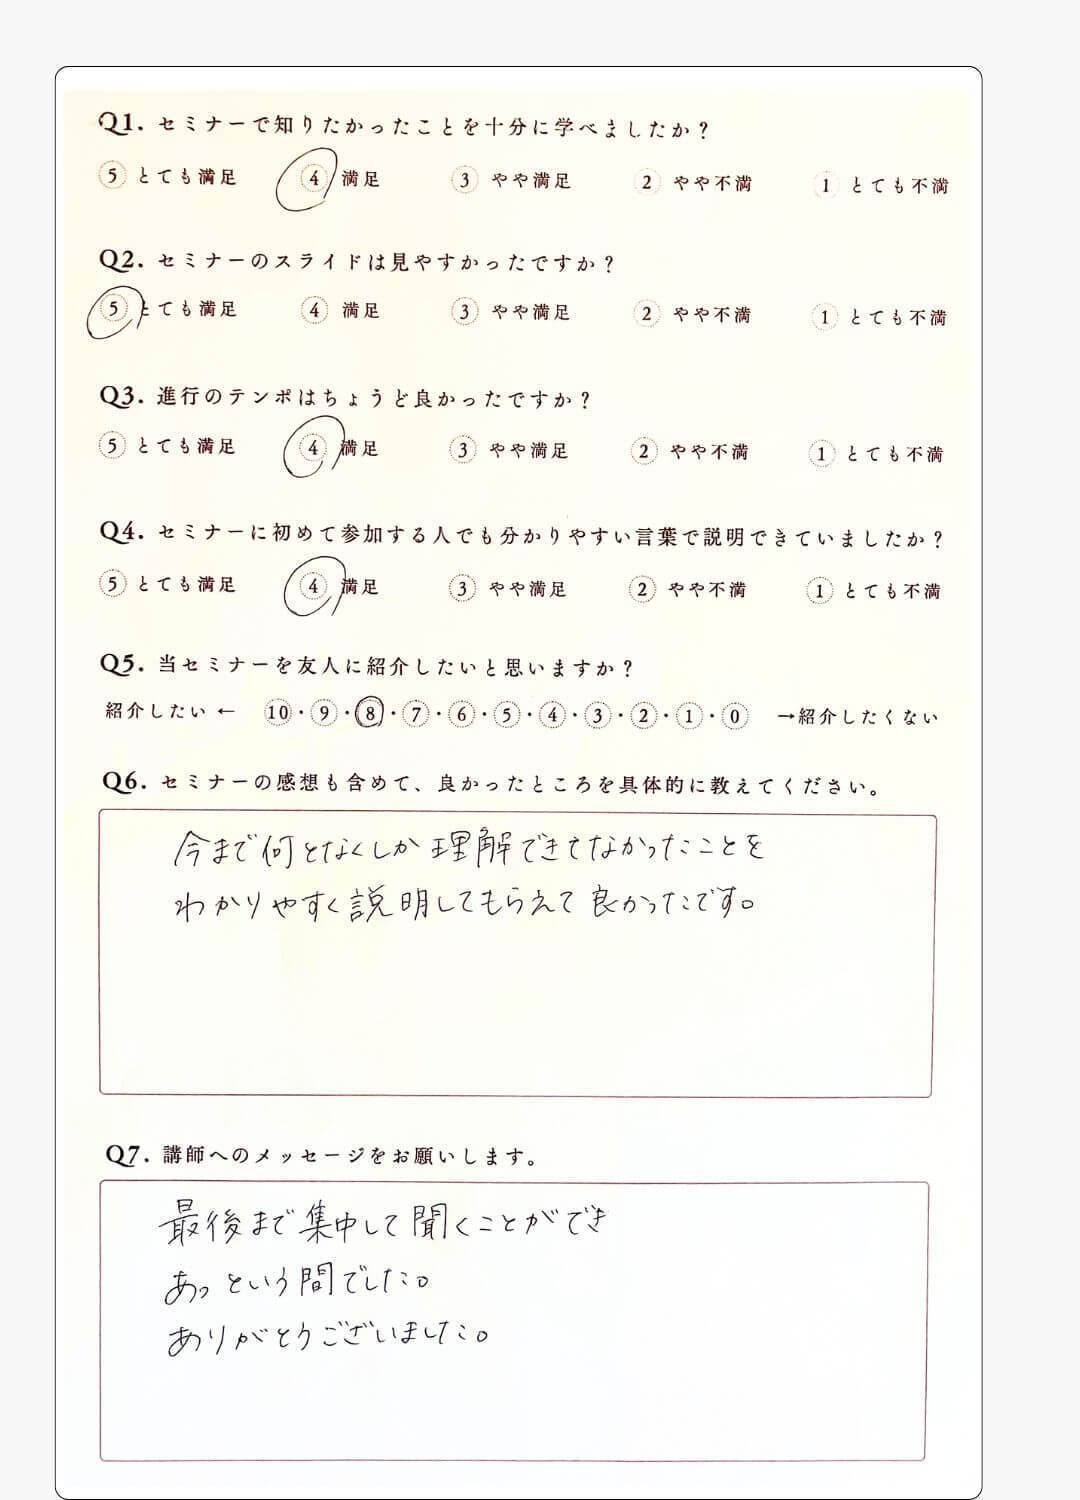 Q1. セミナーで知りたかったことを十分に学べましたか？
5 とても満足 4 満足 3 やや満足 2 やや不満 1 とても不満
Q2. セミナーのスライドは見やすかったですか？
5 とても満足 4 満足 3 やや満足 2 やや不満 1 とても不満
Q3. 進行のテンポはちょうど良かったですか？
5 とても満足 4 満足 3 やや満足 2 やや不満 1 とても不満
Q4. セミナーに初めて参加する人でも分かりやすい言葉で説明できていましたか？
5 とても満足 4 満足 3 やや満足 2 やや不満 1 とても不満
Q5. 当セミナーを友人に紹介したいと思いますか？
紹介したい ← 10・9・8・7・6・5・4・3・2・1・0 →紹介したくない
Q6. セミナーの感想も含めて、良かったところを具体的に教えてください。
今まで何となくしか理解できてなかったことを
わかりやすく説明してもらえて良かったです。
Q7. 講師へのメッセージをお願いします。
最後まで集中して聞くことができ
あっという間でした。
ありがとうございました。